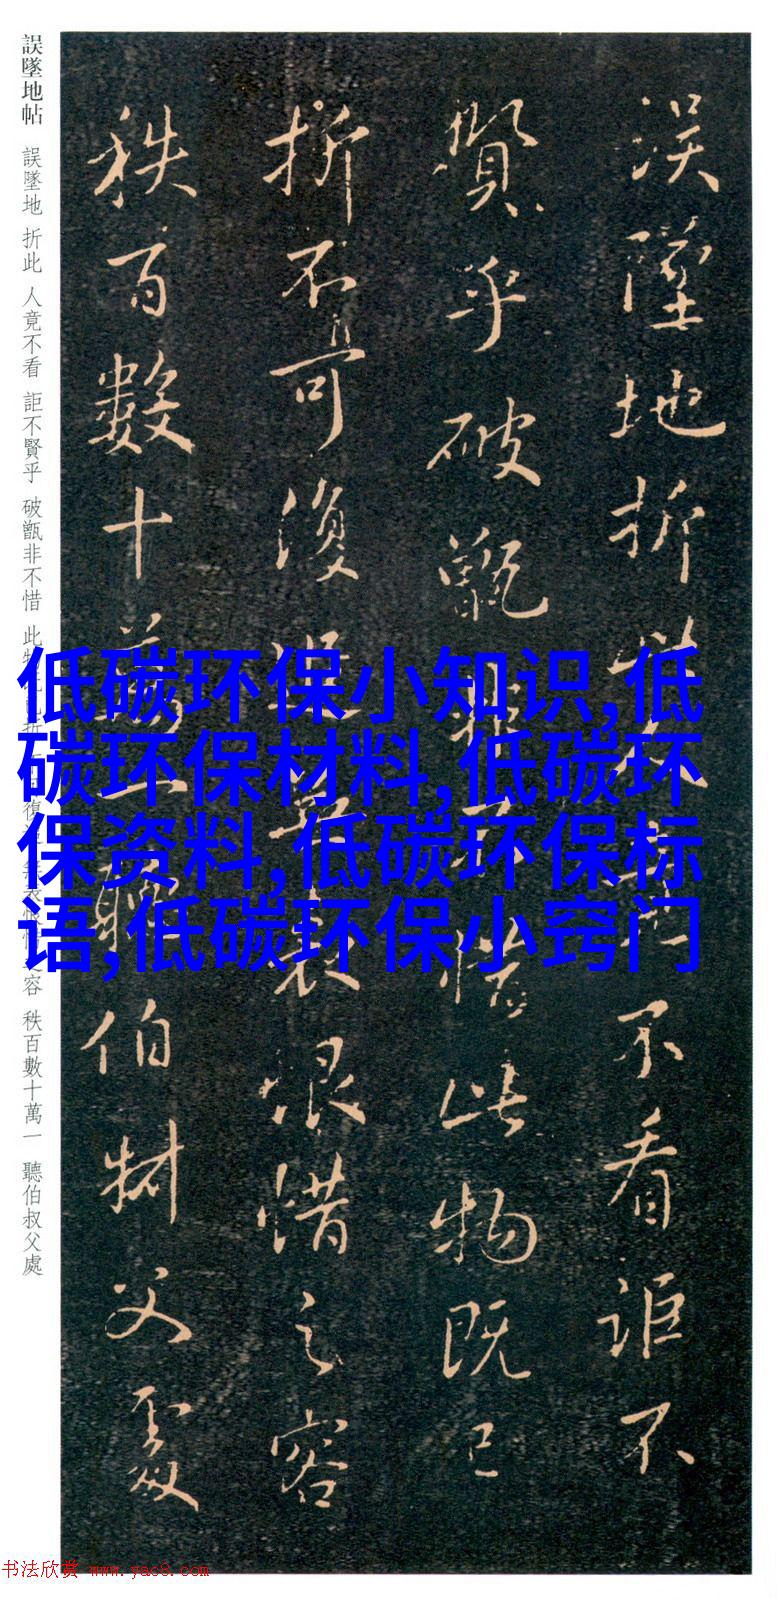 誤墜地折此人竟不看詎不
賢乎破甑非不惜此物既已
折不可復追無表恨惜之容
秩百數十萬一聽伯叔父處
誤墜地帖 誤墜地 折此 人竟不看 詎不賢乎 破甑非不惜 此物 折 復 容 秩百數十萬一 聽伯叔父處
低碳环保小知识,低
碳环保材料,低碳环
保资料,低碳环保标
语,低碳环保小窍门
书法欣赏 www.yac8.com